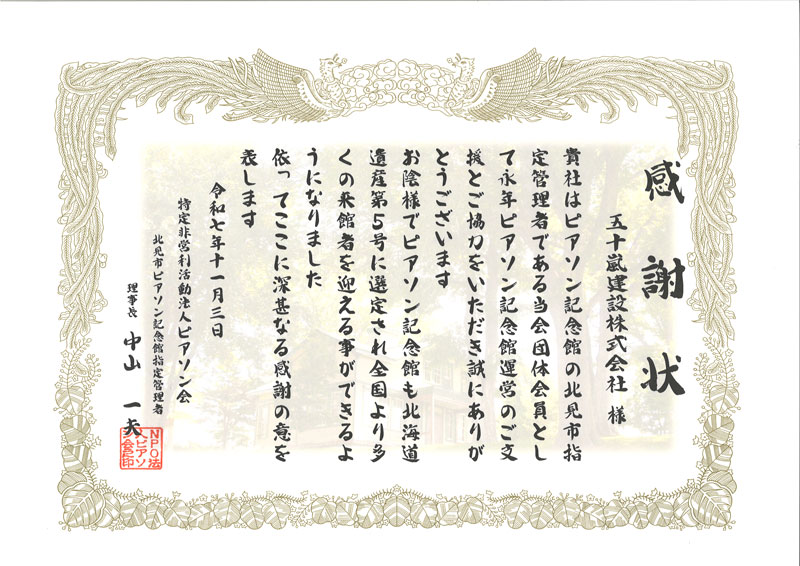 感謝状
五十嵐建設株式会社 様
貴社はピアソン記念館の北見市指
定管理者である当会団体会員とし
て永年ピアソン記念館運営のご支
援とご協力をいただき誠にありが
とうございます
お陰様でピアソン記念館も北海道
遺産第5号に選定され全国より多
くの来館者を迎える事ができるよ
うになりました
依ってここに深甚なる感謝の意を
表します
令和七年十一月三日
特定非営利活動法人ピアソン会
北見市ピアソン記念館指定管理者
理事長 中山 一夫
NPO法
人ピアソ
ン会之印